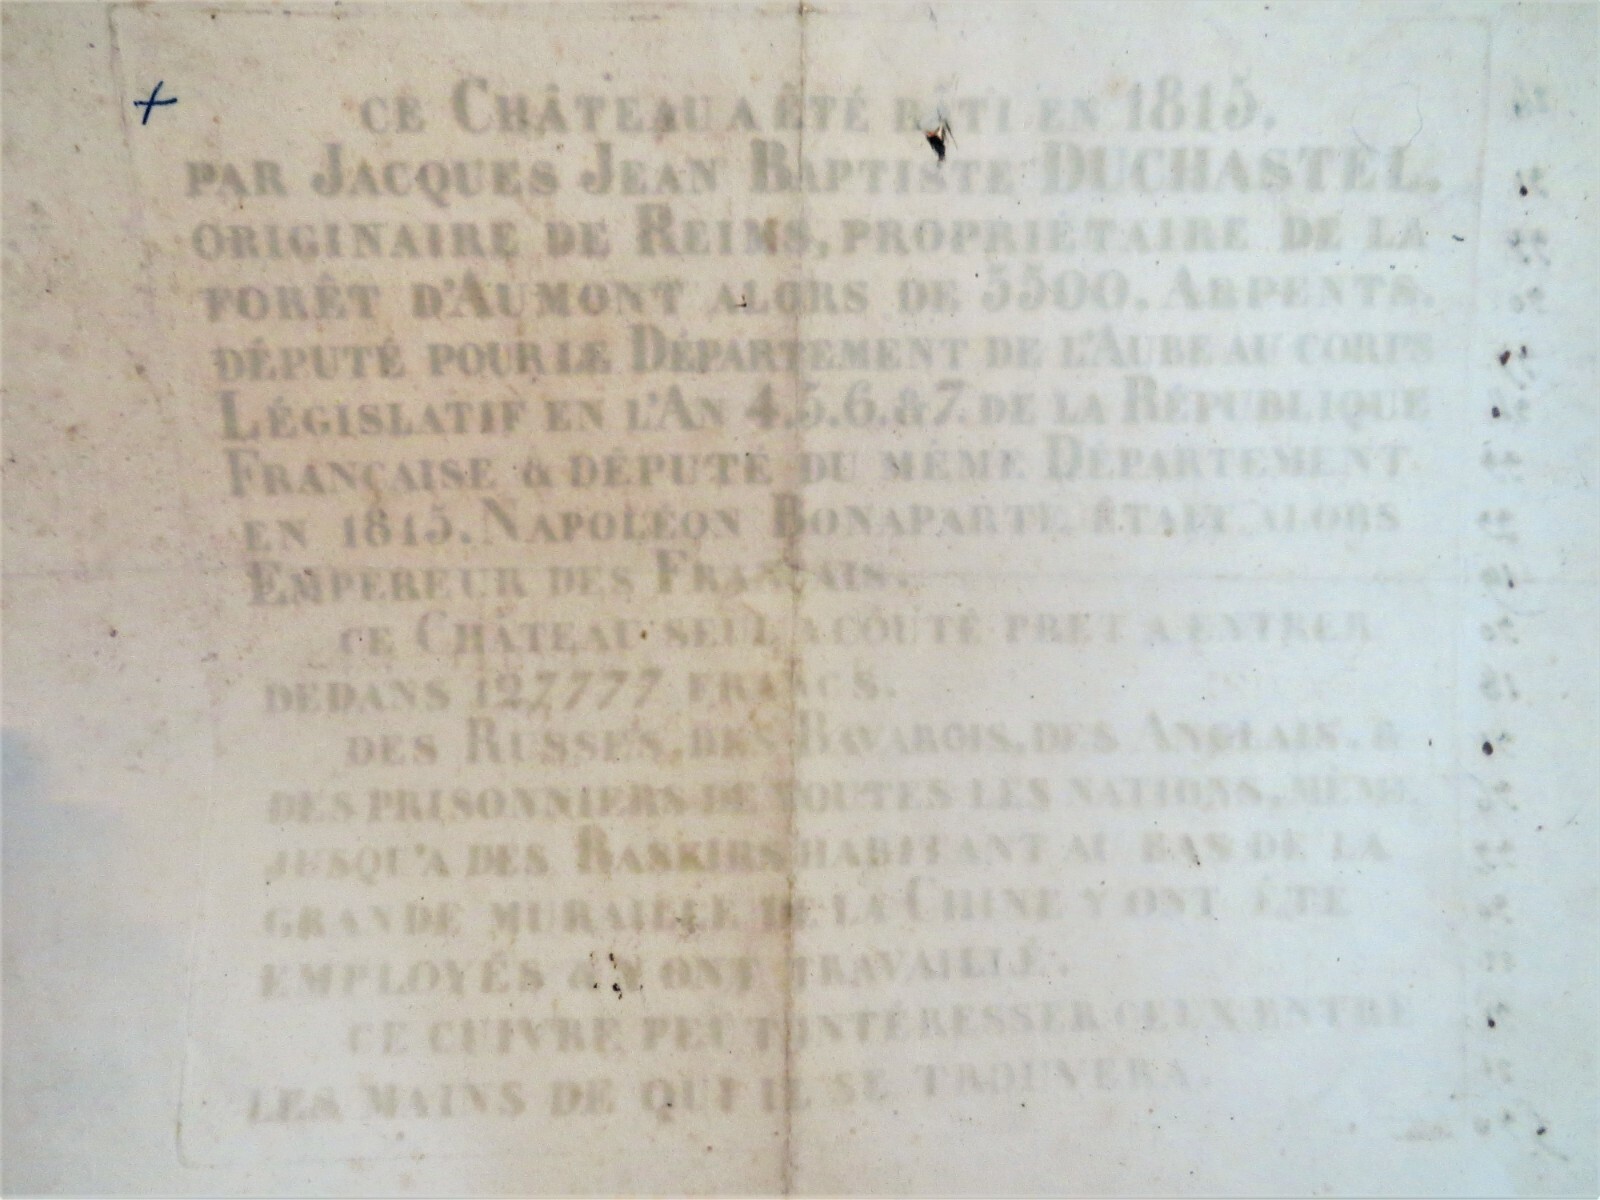 CE CHÂTEAU A ÉTÉ BÂTI EN 1815.
PAR JACQUES JEAN BAPTISTE DUCHASTEL,
ORIGINAIRE DE REIMS, PROPRIÉTAIRE DE LA
FORÊT D'AUMONT ALORS DE 5500. ARPENTS.
DÉPUTÉ POUR LE DÉPARTEMENT DE L'AUBE AU CORPS
LÉGISLATIF EN L'AN 4.5.6.&7. DE LA RÉPUBLIQUE
FRANÇAISE & DÉPUTÉ DU MÊME DÉPARTEMENT
EN 1815. NAPOLÉON BONAPARTE ÉTAIT ALORS
EMPEREUR DES FRANÇAIS.
CE CHÂTEAU SEUL A COÛTÉ PRÊT A ENTRER
DEDANS 127777 FRANCS.
DES RUSSES, DES BAVAROIS, DES ANGLAIS. &
DES PRISONNIERS DE TOUTES LES NATIONS, MÊME
JUSQU'A DES BASKIRS HABITANT AU BAS DE LA
GRANDE MURAILLE DE LA CHINE Y ONT ÉTÉ
EMPLOYÉS & Y ONT TRAVAILLÉ.
CE CUIVRE PEUT INTÉRESSER CEUX ENTRE
LES MAINS DE QUI IL SE TROUVERA.